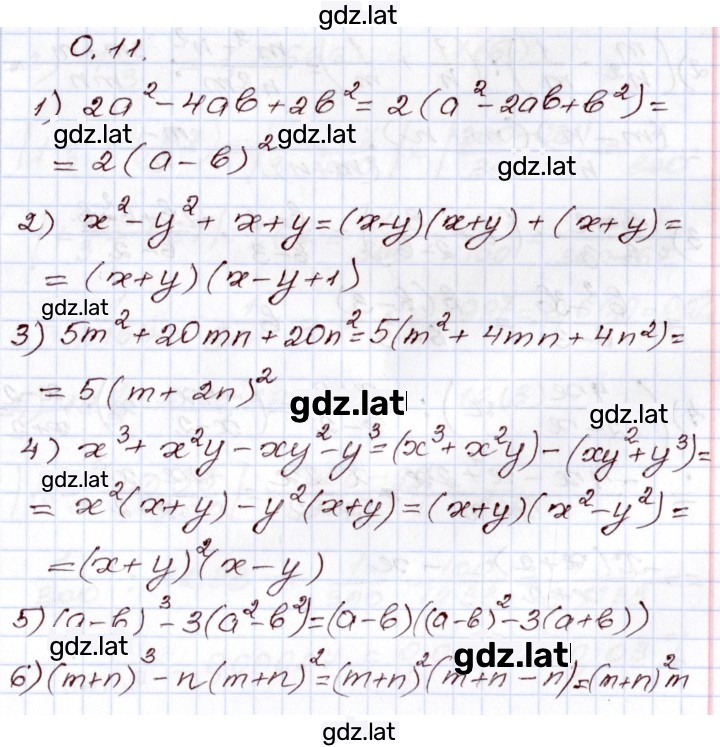 gdz.lat
0.11.
1) 2a² - 4ab + 2b² = 2(a² - 2ab + b²) =
gdz.lat gdz.lat
= 2(a - b)²
gdz.lat
2) x² - y² + x + y = (x - y)(x + y) + (x + y) =
= (x + y)(x - y + 1)
gdz.lat
3) 5m² + 20mn + 20n² = 5(m² + 4mn + 4n²) =
= 5(m + 2n)²
gdz.lat gdz.lat
4) x³ + x²y - xy² - y³ = (x³ + x²y) - (xy² + y³) =
gdz.lat
= x²(x + y) - y²(x + y) = (x + y)(x² - y²) =
= (x + y)²(x - y)
5) (a - b)³ - 3(a² - b²) = (a - b)((a - b)² - 3(a + b))
gdz.lat gdz.lat
6) (m + n)³ - n(m + n)² = (m + n)²(m + n - n) = (m + n)²m
gdz.lat